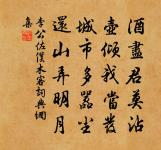 酒盡君莫沽
壺傾我當發
城市多囂塵
還山弄明月
李公佐僕木客詞典網
集